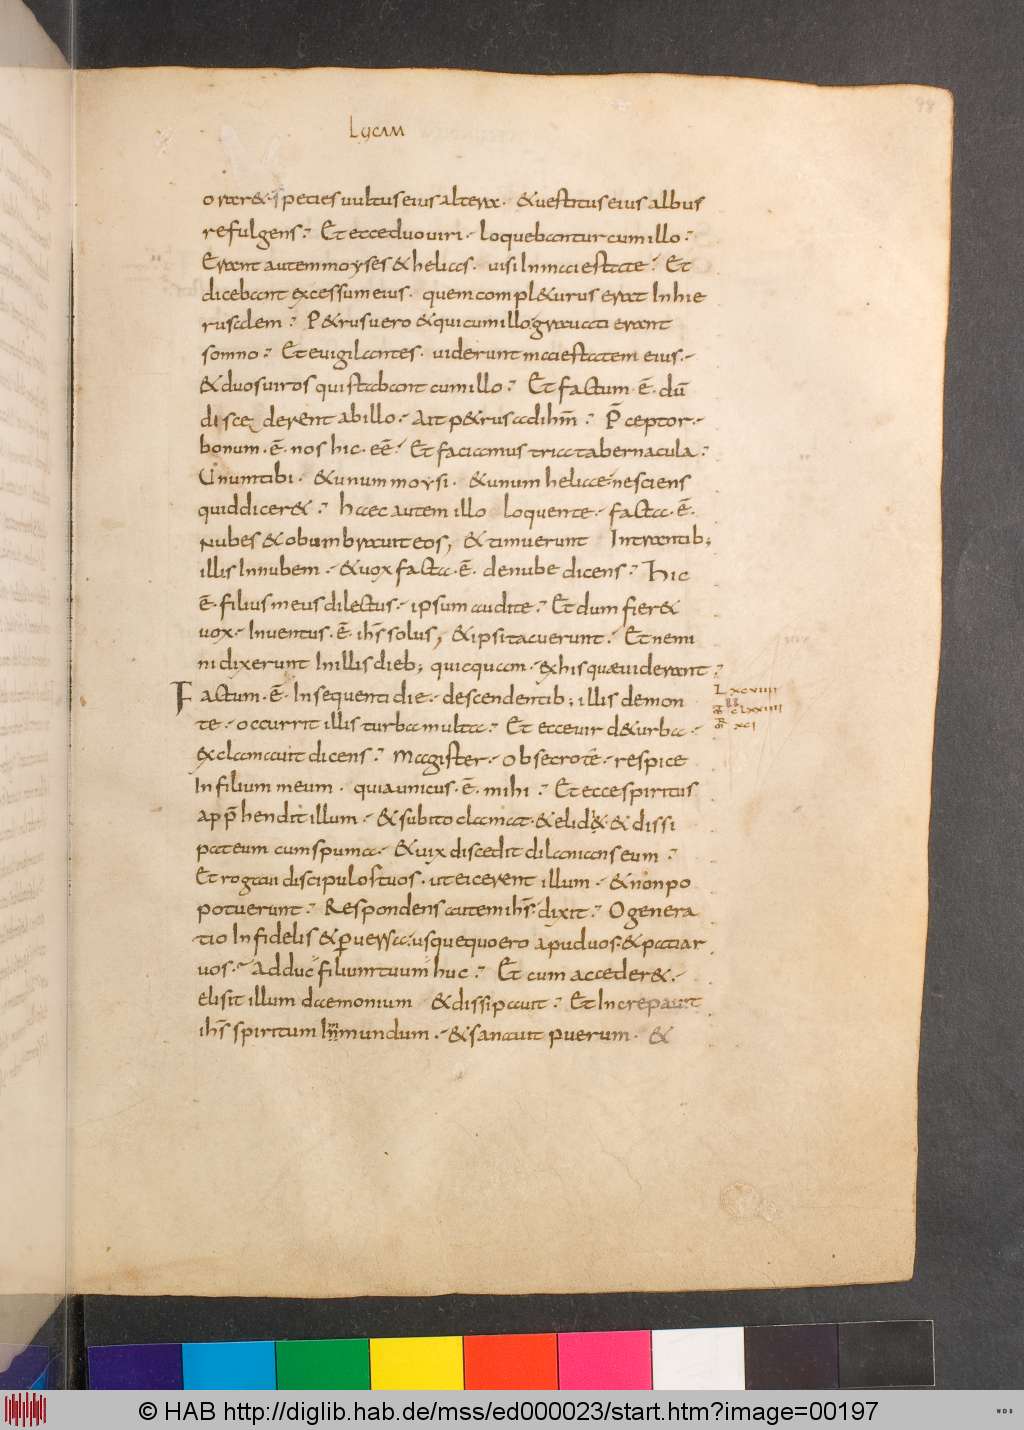 98
Lucam
oraret species uultus eius altera. & uestitus eius albus
refulgens. Et ecce duo uiri. loquebantur cum illo.
Erant autem moyses & helias. uisi In maiestate. Et
dicebant excessum eius. quem compl&urus erat In hie
rusalem. P&rus uero & qui cum illo grauati erant
somno. Et euigilantes. uiderunt maiestatem eius.
& duos uiros qui stabant cum illo. Et factum. ē. dū
discederent ab illo. Ait p&rus ad ihm̄. P̄ceptor.
bonum. ē. nos hic. eē. Et faciamus tria tabernacula.
Unum tibi. & unum moysi. & unum heliae. nesciens
quid dicer&. haec autem illo loquente. facta. ē.
Nubes & obumbrauit eos, & timuerunt Intrantib;
illis In nubem. & uox facta. ē. de nube dicens. Hic
ē. filius meus dilectus. ipsum audite. Et dum fier&
uox. Inuentus. ē. ihs̄ solus, & ipsi tacuerunt. Et nemi
ni dixerunt In illis dieb; quicquam. ex his quae uiderant.
Factum. ē. In sequenti die. descendentib; illis de mon
te. occurrit illis turba multa. Et ecce uir d& urba.
exclamauit dicens. Magister. obsecro te. respice
In filium meum. quia unicus. ē. mihi. Et ecce spiritus
app̄hendit illum. & subito clamat. & elid&. & dissi
pat eum cum spuma. & uix discedit dilanians eum.
Et rogaui discipulos tuos. ut eicerent illum. & non po
potuerunt. Respondens autem ihs̄. dixit. O genera
tio Infidelis & ꝑuersa. usque quo ero apud uos. & patiar
uos. Adduc filium tuum huc. Et cum acceder&.
elisit illum daemonium & dissipauit. Et Increpauit
ihs̄ spiritum Inmundum. & sanauit puerum. &
L xcviiii
clxxiiii
xci
© HAB http://diglib.hab.de/mss/ed000023/start.htm?image=00197